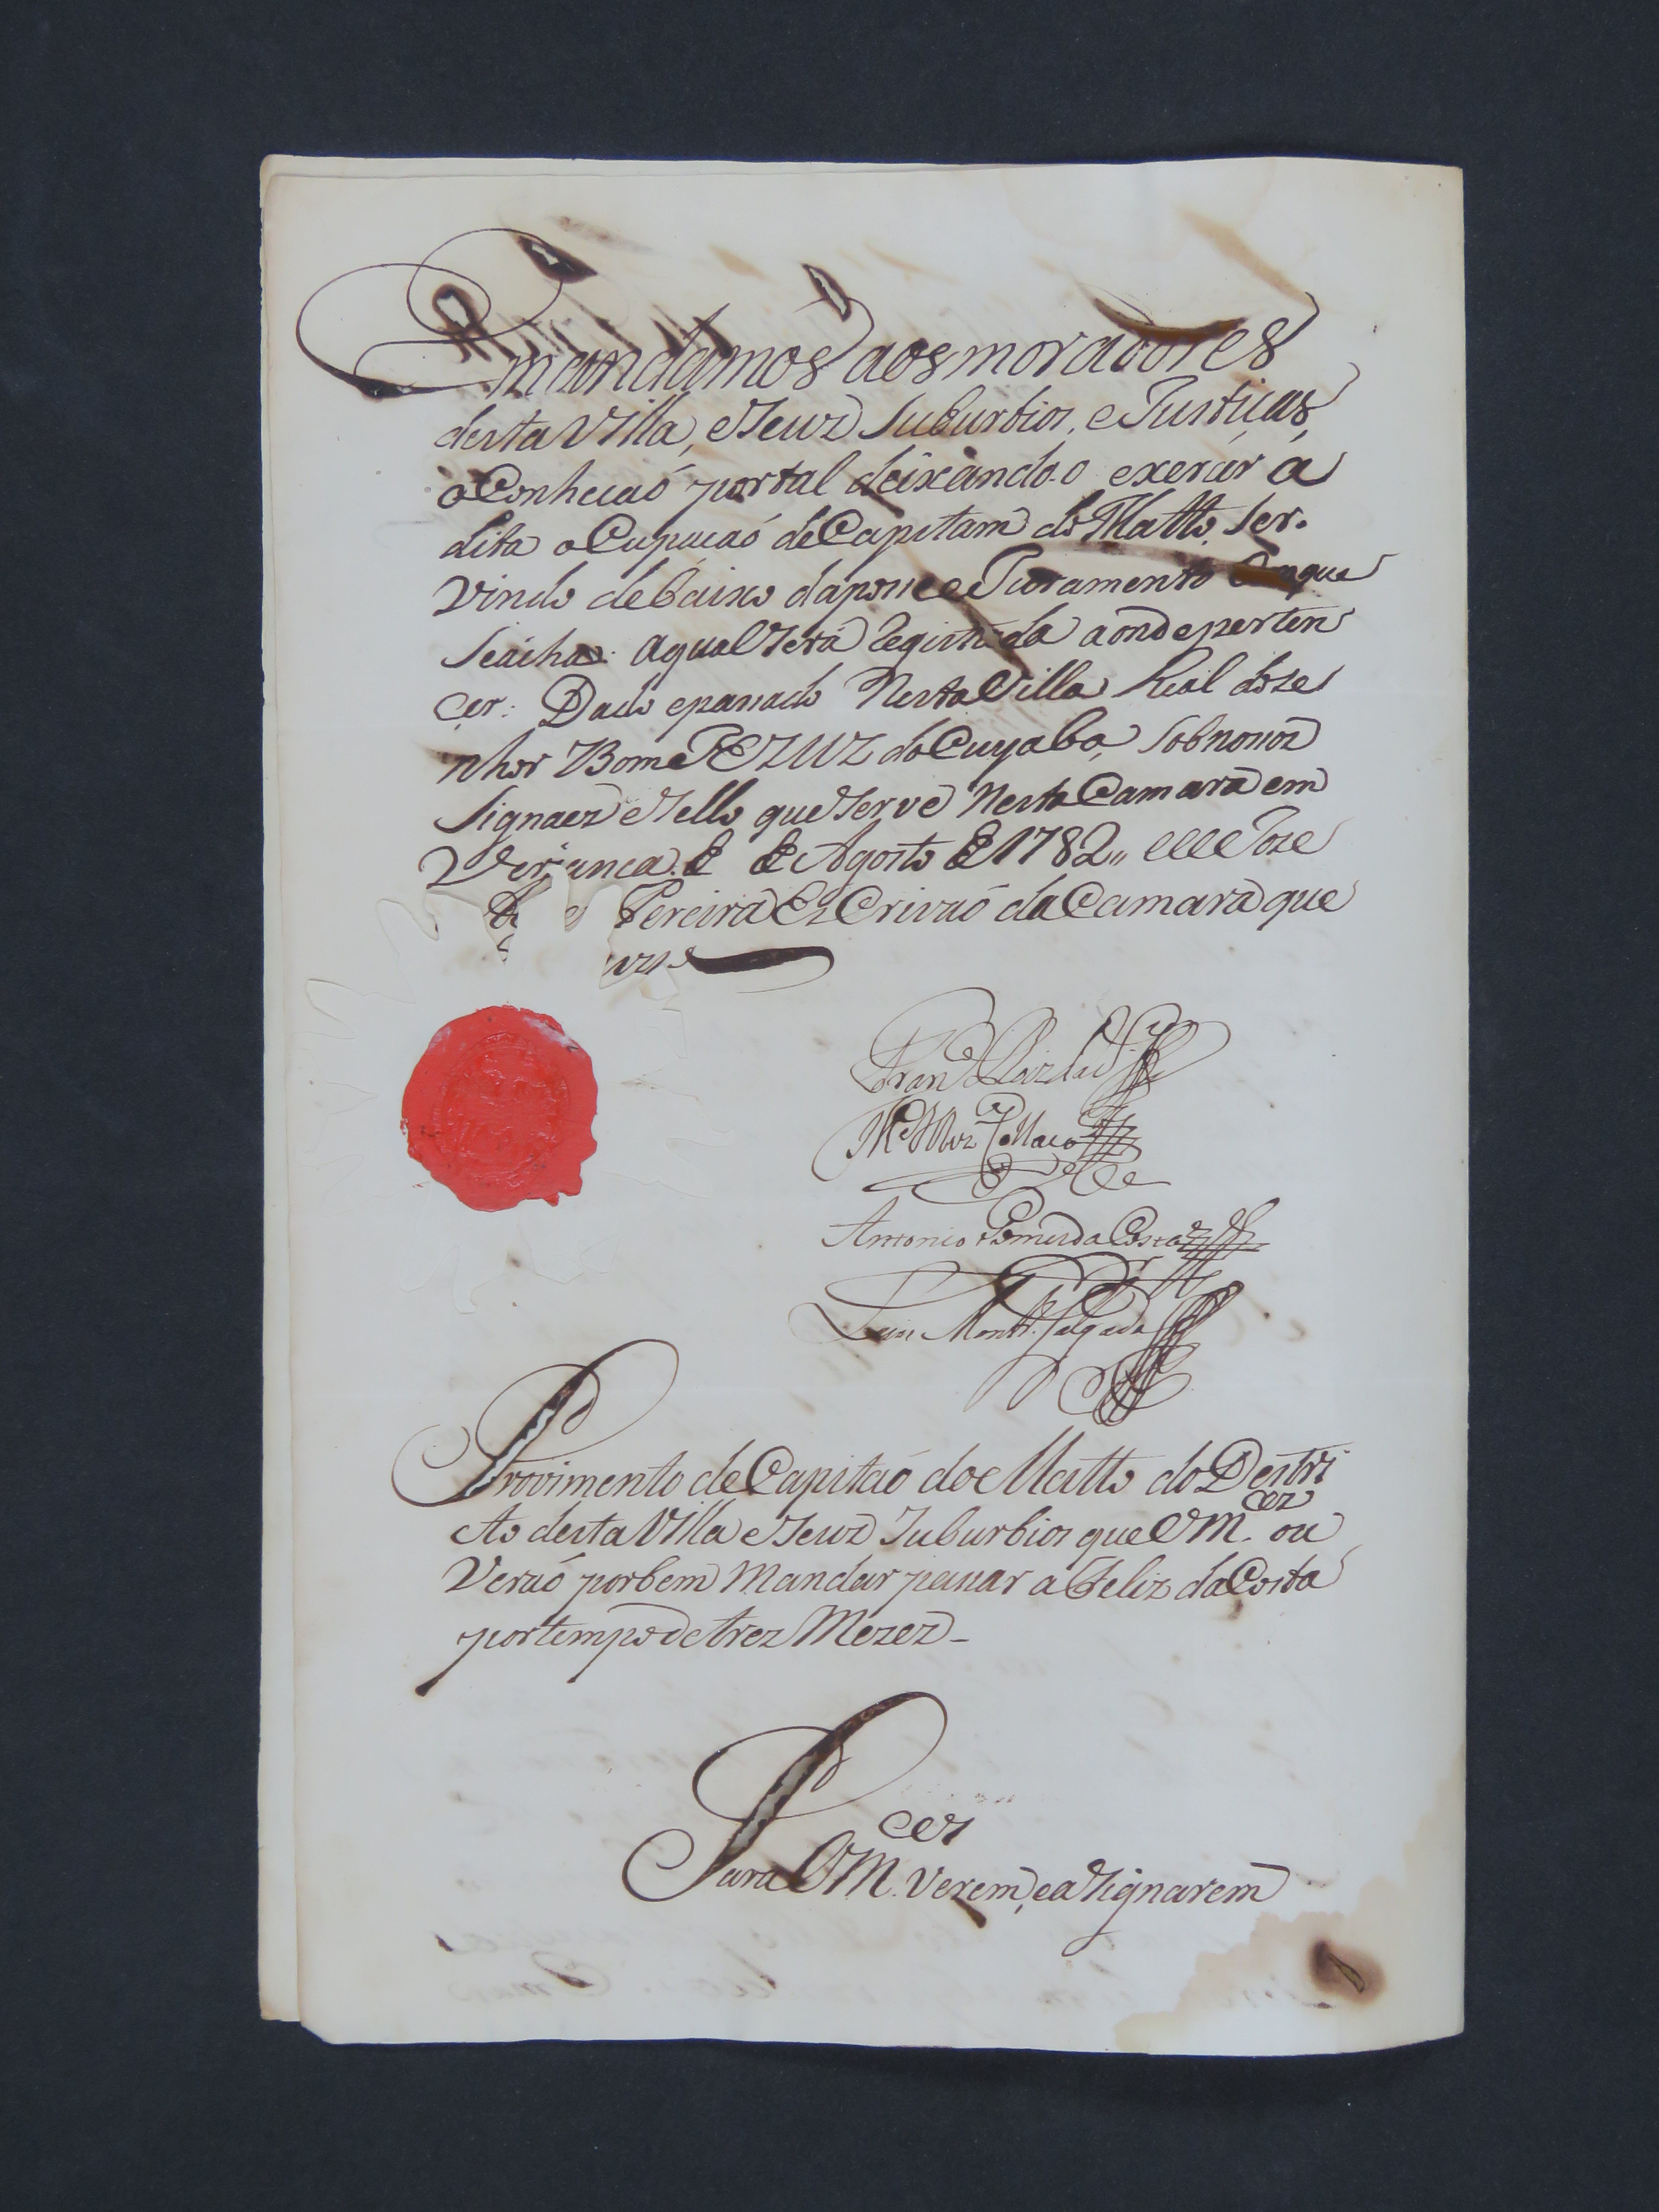 mandamos aos moradores
desta Villa, e seuz Suburbios, e Justiças,
o Conheçaó por tal deixando-o exerçer a
dita oCupaçaó de Capitam do Matto, Ser-
vindo debaixo da posse e Juramento em que
se acha: a qual será Registrada aonde perten
çer: Dado e passado Nesta Villa Real do Se
nhor Bom JEZUZ do Cuyaba, Sob nosos
Signaez e Sello que Serve Nesta Camara em
Veriança de Agosto de 1782,, e Eu Joze
Pereira EsCrivaó da Camara que
Ant.onio Gomes da Costa
Luis Montr.o Salgado
Provimento de Capitaó do Matto do Destri
cto desta Villa e seuz Suburbios que VM.cez ou
Veraó por bem Mandar passar a Feliz da Costa
por tempo de trez Mezez_
Para VM.cez Verem, e asignarem